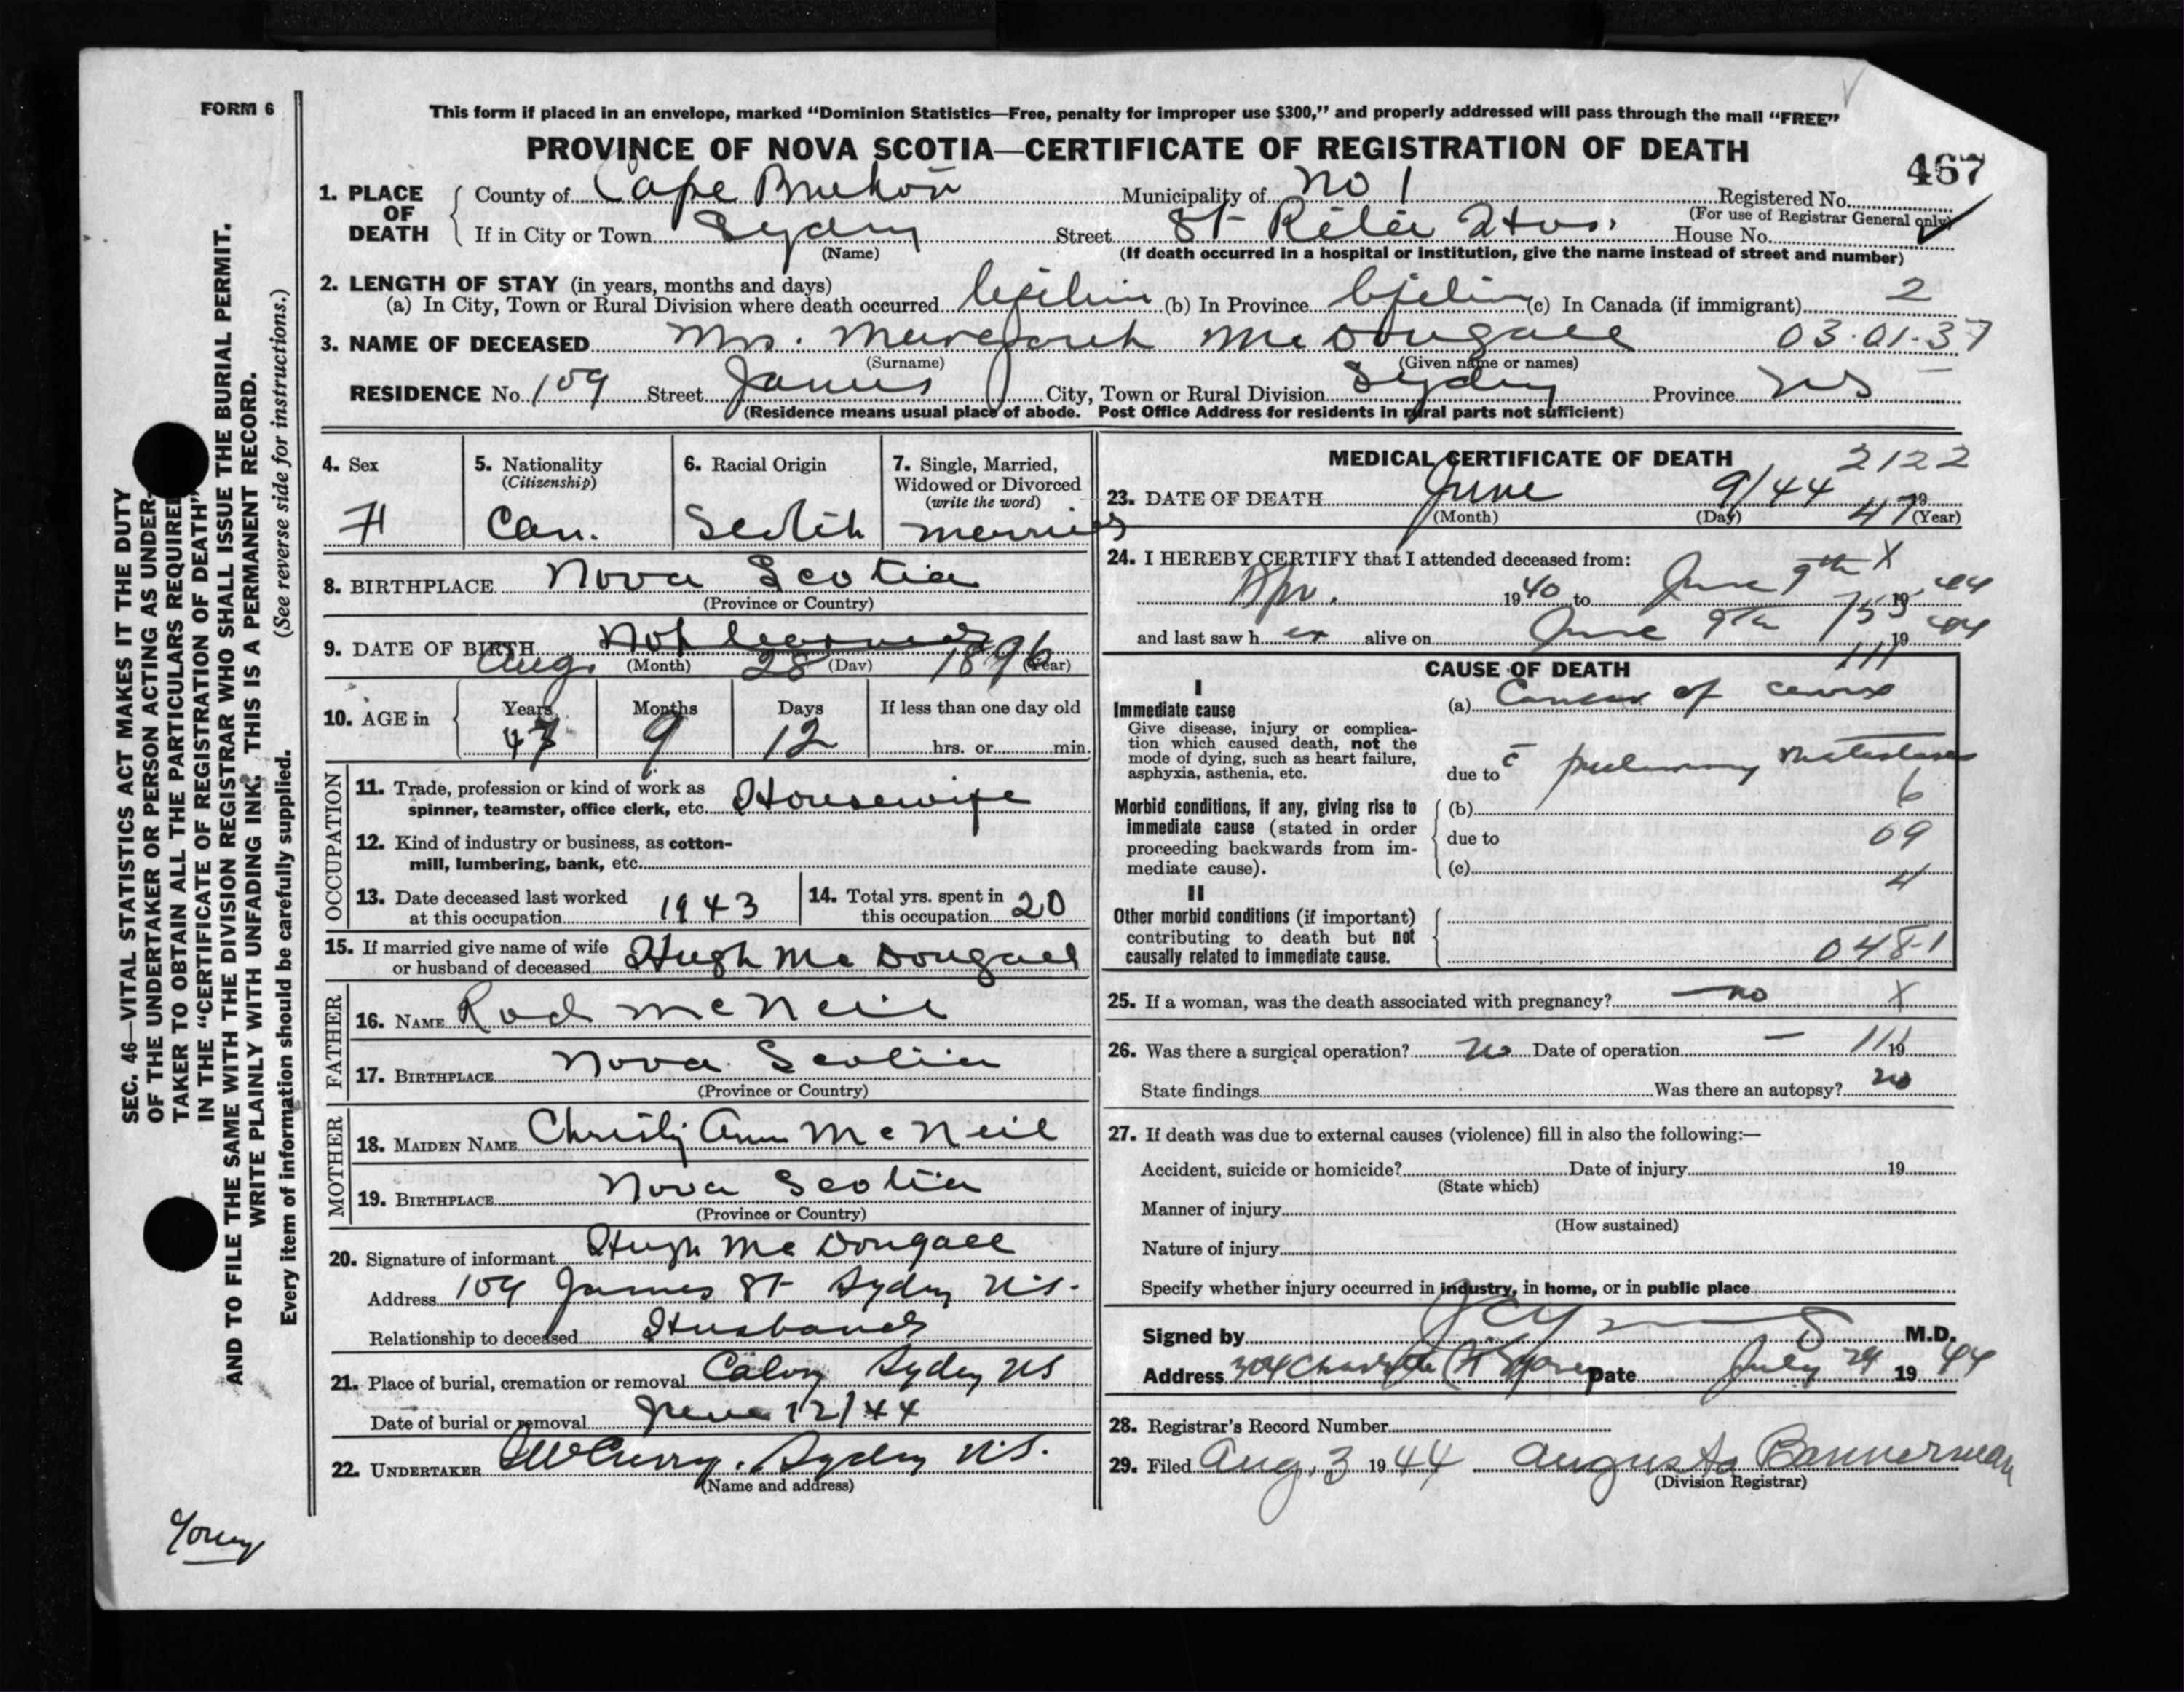 FORM 6
This form if placed in an envelope, marked “Dominion Statistics—Free, penalty for improper use $300,” and properly addressed will pass through the mail “FREE”
PROVINCE OF NOVA SCOTIA—CERTIFICATE OF REGISTRATION OF DEATH
467
1. PLACE OF DEATH
County of Cape Breton Municipality of No 1 Registered No.
(For use of Registrar General only)
If in City or Town Sydney Street St Rita Hos. House No.
(Name) (If death occurred in a hospital or institution, give the name instead of street and number)
2. LENGTH OF STAY (in years, months and days)
(a) In City, Town or Rural Division where death occurred lifetime (b) In Province lifetime (c) In Canada (if immigrant) 2
3. NAME OF DECEASED Mrs. Margaret Mc Dougall 03.01.37
(Surname) (Given name or names)
RESIDENCE No. 109 Street James City, Town or Rural Division Sydney Province NS
(Residence means usual place of abode. Post Office Address for residents in rural parts not sufficient)
4. Sex
F
5. Nationality
(Citizenship)
Can.
6. Racial Origin
Scotch
7. Single, Married,
Widowed or Divorced
(write the word)
married
8. BIRTHPLACE Nova Scotia
(Province or Country)
9. DATE OF BIRTH Not learned
Aug. (Month) 28 (Day) 1896 (Year)
10. AGE in
Years Months Days If less than one day old
47 9 12 hrs. or min.
OCCUPATION
11. Trade, profession or kind of work as
spinner, teamster, office clerk, etc. Housewife
12. Kind of industry or business, as cotton-
mill, lumbering, bank, etc.
13. Date deceased last worked
at this occupation 1943
14. Total yrs. spent in
this occupation 20
15. If married give name of wife
or husband of deceased Hugh Mc Dougall
FATHER
16. NAME Rod McNeil
17. BIRTHPLACE Nova Scotia
(Province or Country)
MOTHER
18. MAIDEN NAME Christy Ann McNeil
19. BIRTHPLACE Nova Scotia
(Province or Country)
20. Signature of informant Hugh Mc Dougall
Address 109 James St Sydney N.S.
Relationship to deceased Husband
21. Place of burial, cremation or removal Calvry Sydney NS
Date of burial or removal June 12/44
22. UNDERTAKER Sydney N.S.
(Name and address)
MEDICAL CERTIFICATE OF DEATH 2122
23. DATE OF DEATH June 9/44 47 19
(Month) (Day) (Year)
24. I HEREBY CERTIFY that I attended deceased from:
Apr. 1940 to June 9th X 19 44
and last saw h er alive on June 9th 753 19 44
CAUSE OF DEATH 111
I
Immediate cause
Give disease, injury or complica-
tion which caused death, not the
mode of dying, such as heart failure,
asphyxia, asthenia, etc.
(a) Cancer of cervix
due to c̄ pulmonary metastases
Morbid conditions, if any, giving rise to
immediate cause (stated in order
proceeding backwards from im-
mediate cause).
(b) 6
due to 09
(c) 4
II
Other morbid conditions (if important)
contributing to death but not
causally related to immediate cause.
048-1
25. If a woman, was the death associated with pregnancy? no X
26. Was there a surgical operation? no Date of operation — 111 19
State findings Was there an autopsy? no
27. If death was due to external causes (violence) fill in also the following:—
Accident, suicide or homicide? Date of injury 19
(State which)
Manner of injury
(How sustained)
Nature of injury
Specify whether injury occurred in industry, in home, or in public place
Signed by M.D.
Address Charlotte St Date July 29 19 44
28. Registrar's Record Number
29. Filed Aug. 3 1944 Augusta Bannerman
(Division Registrar)
SEC. 46—VITAL STATISTICS ACT MAKES IT THE DUTY
OF THE UNDERTAKER OR PERSON ACTING AS UNDER-
TAKER TO OBTAIN ALL THE PARTICULARS REQUIRED
IN THE “CERTIFICATE OF REGISTRATION OF DEATH”
AND TO FILE THE SAME WITH THE DIVISION REGISTRAR WHO SHALL ISSUE THE BURIAL PERMIT.
WRITE PLAINLY WITH UNFADING INK. THIS IS A PERMANENT RECORD.
Every item of information should be carefully supplied. (See reverse side for instructions.)